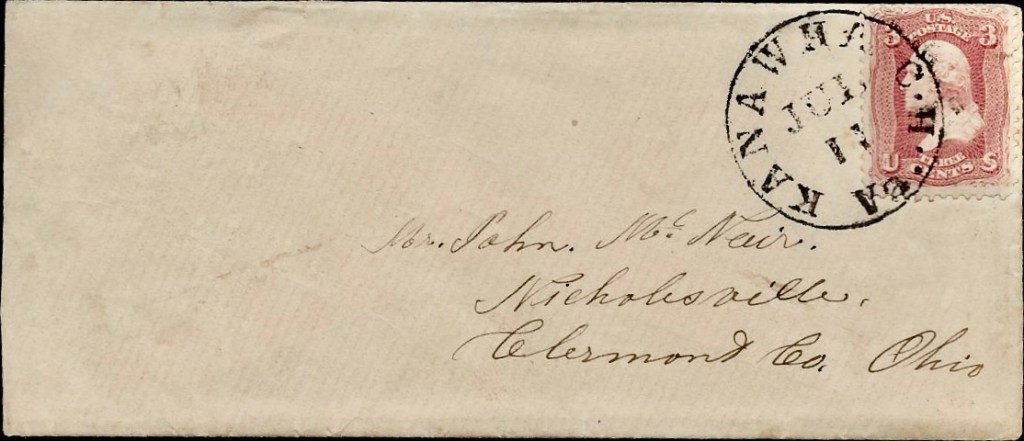 KANAWHA C.H. VA
JUL
11
U.S.
POSTAGE
3 3
THREE
CENTS
U S
Mr. John. Mc. Nair.
Nicholesville,
Clermond Co. Ohio